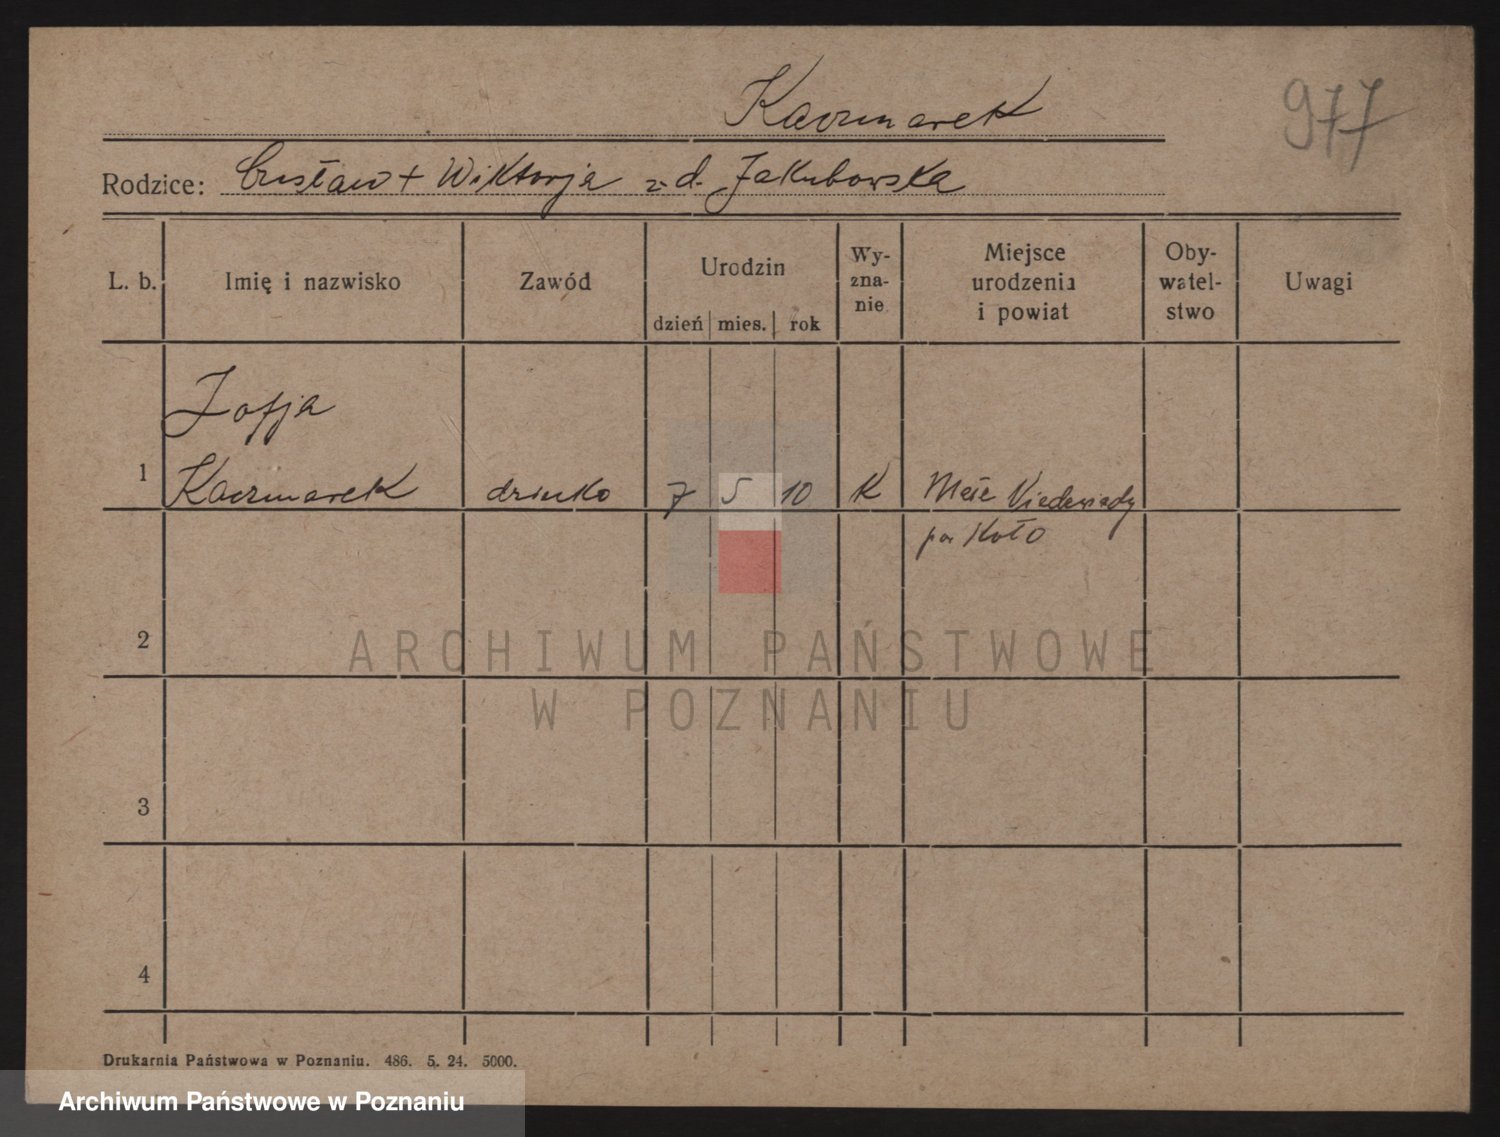 Kaczmarek
977
Rodzice: Gustaw + Wiktorja z d. Jakubowska
L. b.
Imię i nazwisko
Zawód
Urodzin
dzień mies. rok
Wy-
zna-
nie
Miejsce
urodzenia
i powiat
Oby-
watel-
stwo
Uwagi
Zofja
1 Kaczmarek dziecko 7 5 10 K Małe
Koło
2
3
4
ARCHIWUM PAŃSTWOWE
W POZNANIU
Drukarnia Państwowa w Poznaniu. 486. 5. 24. 5000.
Archiwum Państwowe w Poznaniu